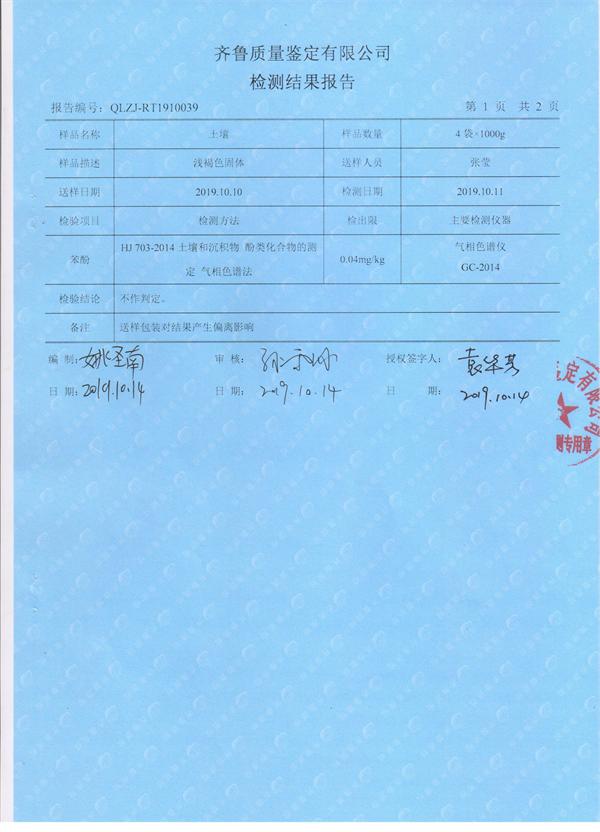 齐鲁质量鉴定有限公司
检测结果报告
报告编号: QLZJ-RT1910039 第 1 页 共 2 页
样品名称 土壤 样品数量 4 袋×1000g
样品描述 浅褐色固体 送样人员 张莹
送样日期 2019.10.10 检测日期 2019.10.11
检验项目 检测方法 检出限 主要检测仪器
苯酚 HJ 703-2014 土壤和沉积物 酚类化合物的测 0.04mg/kg 气相色谱仪
定 气相色谱法 GC-2014
检验结论 不作判定。
备注 送样包装对结果产生偏离影响
编 制: 审 核: 授权签字人:
日 期: 2019.10.14 日 期: 2019.10.14 日 期: 2019.10.14
定有限公司
测专用章